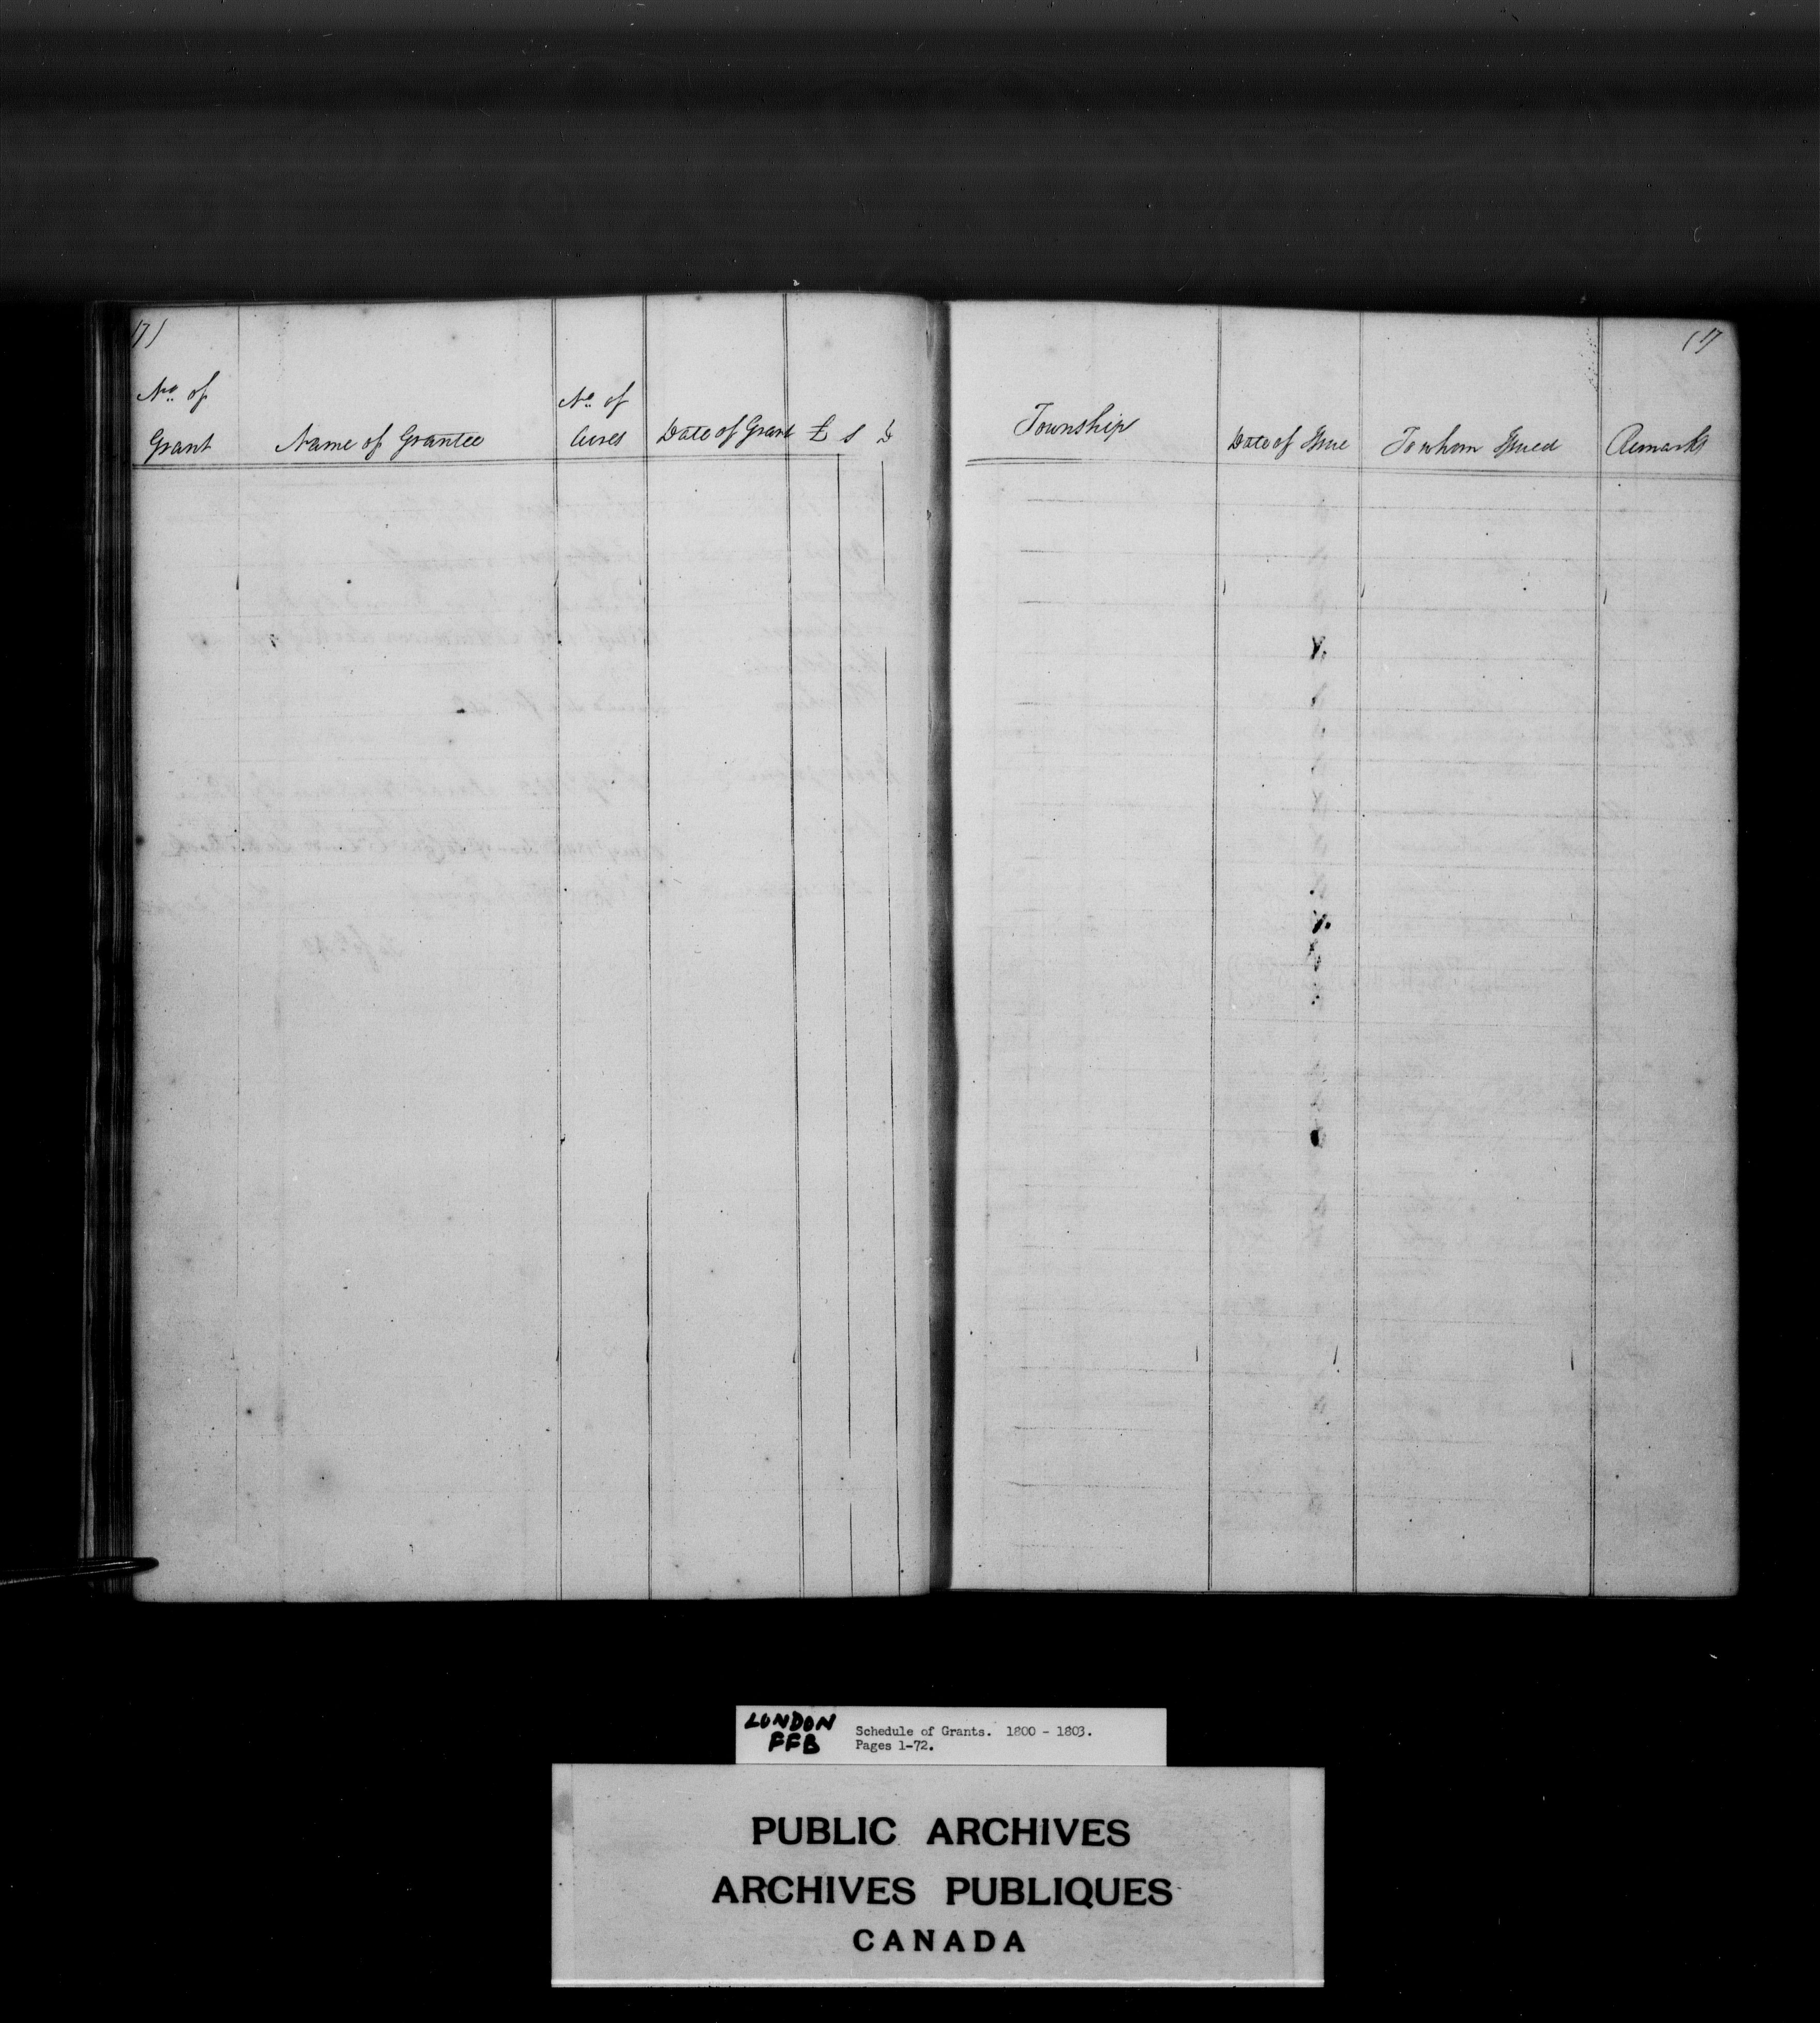 17)
No. of
Grant
Name of Grantee
No. of
Acres
Date of Grant
£ s D
(17
Township
Date of Issue
To whom Issued
Remarks
LONDON
FFB
Schedule of Grants. 1800 - 1803.
Pages 1-72.
PUBLIC ARCHIVES
ARCHIVES PUBLIQUES
CANADA